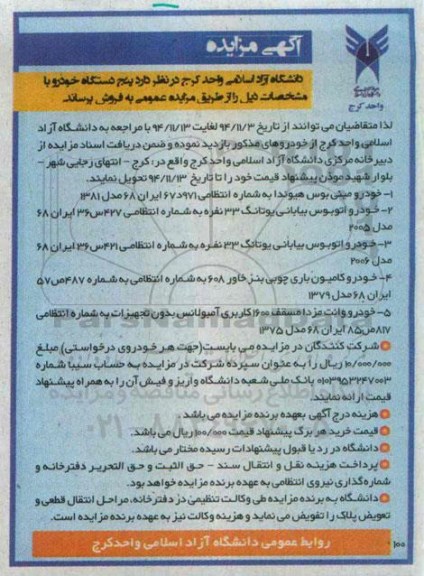 آگهی مزایده
واحد کرج
دانشگاه آزاد اسلامی واحد کرج در نظر دارد پنج دستگاه خودرو با
مشخصات ذیل را از طریق مزایده عمومی به فروش برساند.
لذا متقاضیان می توانند از تاریخ ۹۴/۱۱/۳ لغایت ۹۴/۱۱/۱۳ با مراجعه به دانشگاه آزاد
اسلامی واحد کرج از خودروهای مذکور بازدید نموده و ضمن دریافت اسناد مزایده از
دبیرخانه مرکزی دانشگاه آزاد اسلامی واحد کرج واقع در: کرج - انتهای رجایی شهر -
بلوار شهید موذن پیشنهاد قیمت خود را تا تاریخ ۹۴/۱۱/۱۳ تحویل نمایند.
۱- خودرو مینی بوس هیوندا به شماره انتظامی ۹۷۱د۶۷ ایران ۶۸ مدل ۱۳۸۱
۲- خودرو اتوبوس بیابانی یوتانگ ۳۳ نفره به شماره انتظامی ۴۲۷س۳۶ ایران ۶۸
مدل ۲۰۰۵
۳- خودرو اتوبوس بیابانی یوتانگ ۳۳ نفره به شماره انتظامی ۴۲۱س۳۶ ایران ۶۸
مدل ۲۰۰۶
۴- خودرو کامیون باری چوبی بنز خاور ۶۰۸ به شماره انتظامی به شماره ۴۸۷ص۵۷
ایران ۶۸ مدل ۱۳۷۹
۵- خودرو وانت مزدا مسقف ۱۶۰۰ کاربری آمبولانس بدون تجهیزات به شماره انتظامی
۸۱۷ص۸۵ ایران ۶۸ مدل ۱۳۷۵
شرکت کنندگان در مزایده می بایست (جهت هر خودروی درخواستی) مبلغ
۱۰/۰۰۰/۰۰۰ ریال را به عنوان سپرده شرکت در مزایده به حساب سیبا شماره
۰۱۰۳۹۵۳۲۴۷۰۰۳ بانک ملی شعبه دانشگاه واریز و فیش آن را به همراه پیشنهاد
قیمت ارائه نمایند.
هزینه درج آگهی بعهده برنده مزایده می باشد.
قیمت خرید هر برگ پیشنهاد قیمت ۱۰۰/۰۰۰ ریال می باشد.
دانشگاه در رد یا قبول پیشنهادات رسیده مختار می باشد.
پرداخت هزینه نقل و انتقال سند - حق الثبت و حق التحریر دفترخانه و
شماره گذاری نیروی انتظامی به عهده برنده مزایده خواهد بود.
دانشگاه به برنده مزایده طی وکالت تنظیمی در دفترخانه، مراحل انتقال قطعی و
تعویض پلاک را تفویض می نماید و هزینه وکالت نیز به عهده برنده مزایده است.
روابط عمومی دانشگاه آزاد اسلامی واحد کرج